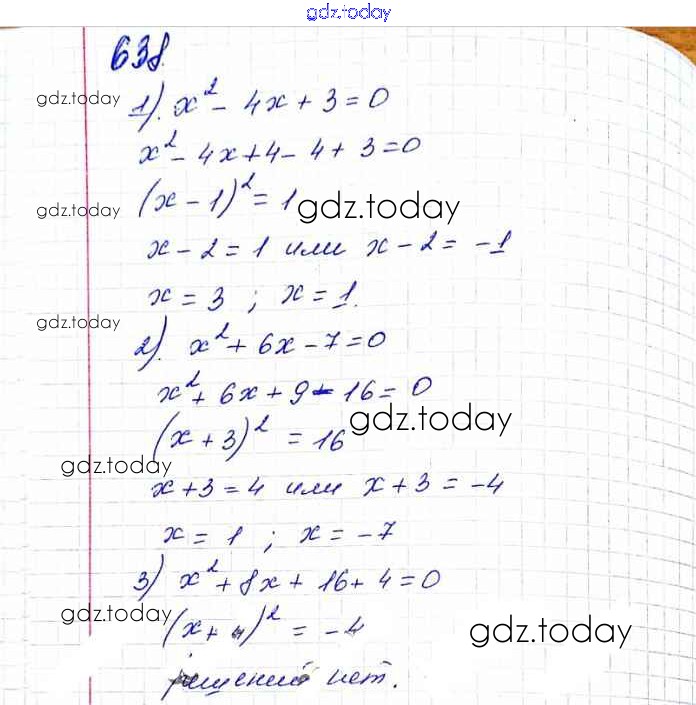 gdz.today
638.
gdz.today
1). x² - 4x + 3 = 0
x² - 4x + 4 - 4 + 3 = 0
gdz.today
(x - 1)² = 1
gdz.today
x - 2 = 1 или x - 2 = -1
x = 3 ; x = 1.
gdz.today
2). x² + 6x - 7 = 0
x² + 6x + 9 - 16 = 0
(x + 3)² = 16
gdz.today
gdz.today
x + 3 = 4 или x + 3 = -4
x = 1 ; x = -7
3) x² + 8x + 16 + 4 = 0
gdz.today
(x + 4)² = -4
gdz.today
решений нет.